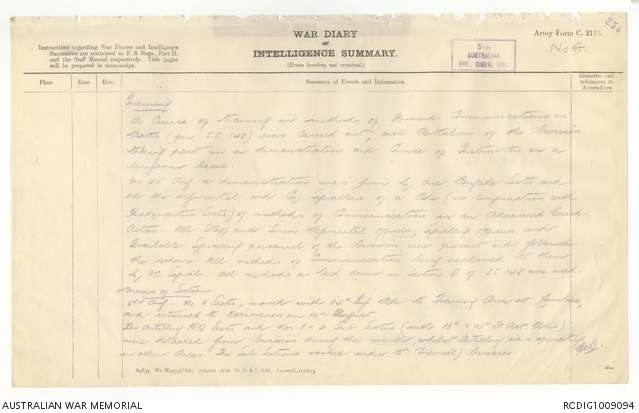 WAR DIARY
or
INTELLIGENCE SUMMARY.
(Erase heading not required.)
Army Form C. 2118.
254
No 4.
Instructions regarding War Diaries and Intelligence
Summaries are contained in F. S. Regs., Part II.
and the Staff Manual respectively. Title pages
will be prepared in manuscript.
AUSTRALIAN
DIVL. SIGNAL COY.
Place
Date
Hour
Summary of Events and Information
Remarks and
references to
Appendices
Training
A Course of training in methods of Forward Communications in
Battle (per S.S. 148) was carried out, each Battalion of the Division
taking part in a demonstration and Course of Instruction on a
uniform basis.
On Aug a demonstration was given by one Brigade Section and
all the regimental and Signallers of a Bde (in conjunction with
Headquarters Section) of methods of Communication in an Advanced Guard
Action. All Staff and Senior Regimental Officers, Signalling Officers and
available Signalling personnel of the Division were present and followed
the scheme. All methods of Communication being explained to them
by All methods as laid down in Section of S.S. 148 were used.
Moves of Sections
Aug. No Section, moved with 14th Inf Bde to Training Area at
and returned to on August.
The Artillery HQ Section and No 1 & 2 Sub Sections (with
were detached from Division during the month, whilst Artillery was operating
in other Areas. The Sub Sections worked under Division
AUSTRALIAN WAR MEMORIAL
RCDIG1009094